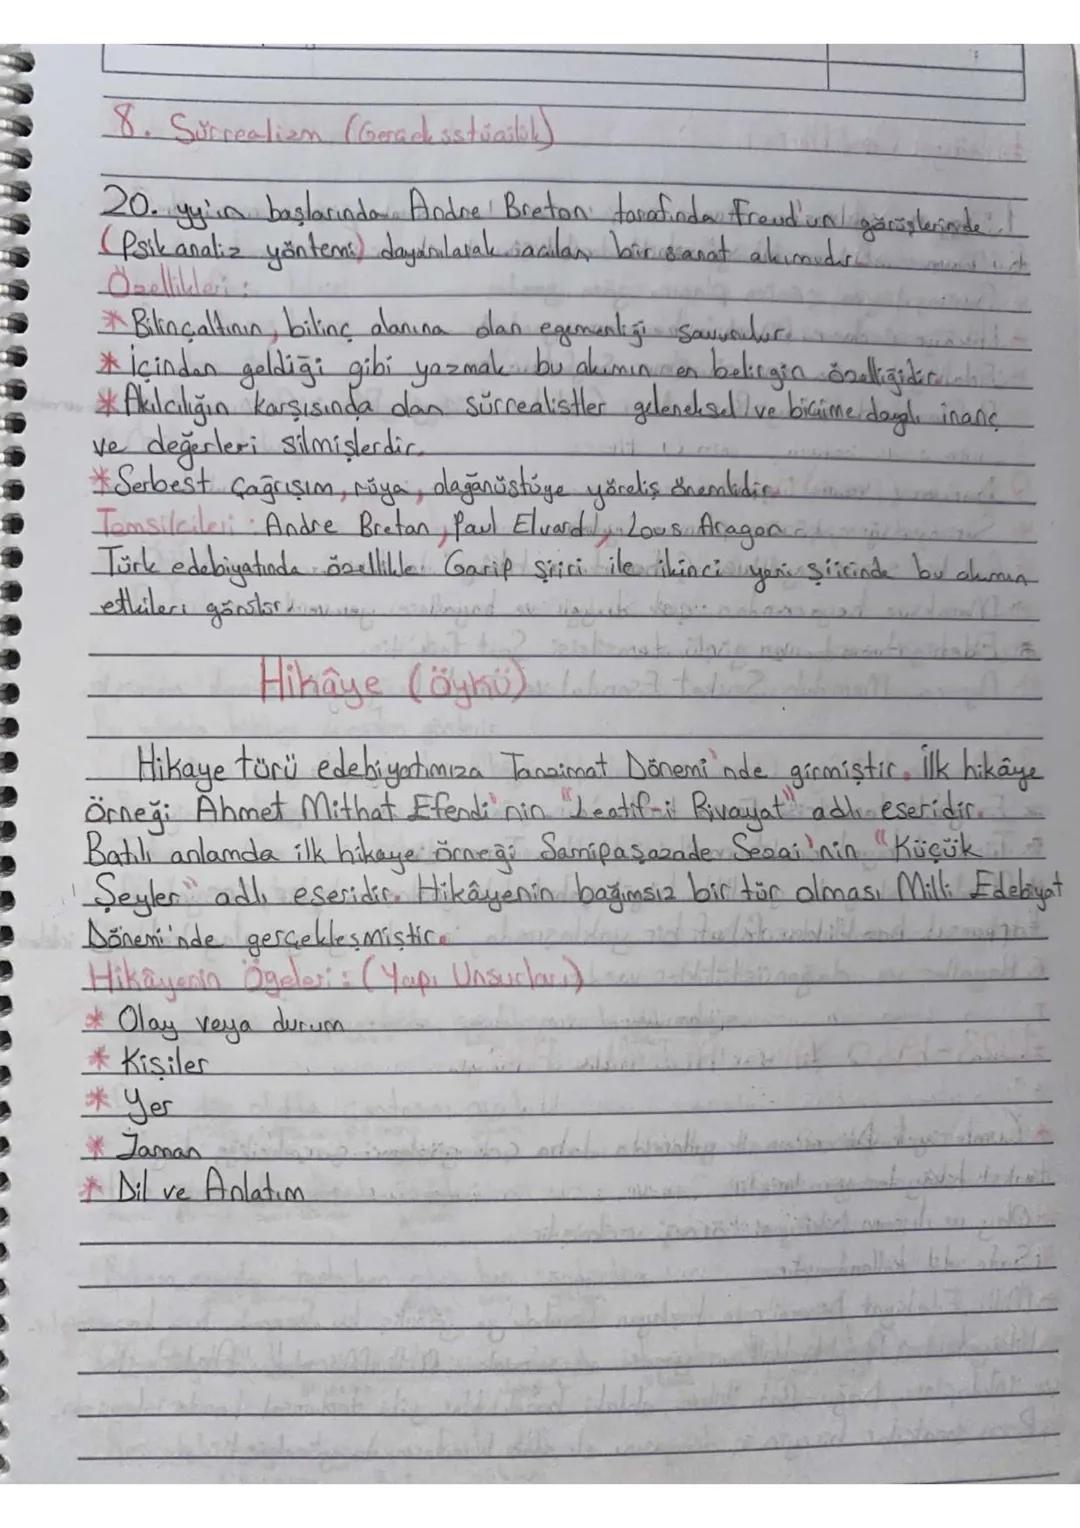 8. Sürrealizm (Gerçeküstücülük)
20. yy'ın başlarında Andre Breton tarafında Freud'un görüşlerinde
(Psikanaliz yöntemi) dayanılarak açılan bir sanat akımıdır.
Özellikleri:
* Bilinçaltının, bilinç alanına olan egemenliği savunulur.
* İçinden geldiği gibi yazmak bu akımın en belirgin özelliğidir.
* Akılcılığın karşısında olan sürrealistler geleneksel ve biçime dayalı inanç
ve değerleri silmişlerdir.
* Serbest çağrışım, rüya, olağanüstüye yöneliş önemlidir.
Temsilcileri: Andre Bretan, Paul Eluard, Lous Aragon
Türk edebiyatında özellikle Garip şiiri ile ikinci yeni şiirinde bu akımın
etkileri görülür.
Hikâye (öykü)
Hikaye türü edebiyatımıza Tanzimat Dönemi'nde girmiştir. İlk hikâye
Örneği Ahmet Mithat Efendi'nin "Leatif-i Rivayat" adlı eseridir.
Batılı anlamda ilk hikaye örneği Samipaşazade Sezai'nin "Küçük
Şeyler" adlı eseridir. Hikâyenin bağımsız bir tür olması Milli Edebiyat
Dönemi'nde gerçekleşmiştir.
Hikâyenin Ögeleri: (Yapı Unsurları)
* Olay veya durum
* Kişiler
* Yer
* Zaman
* Dil ve Anlatım